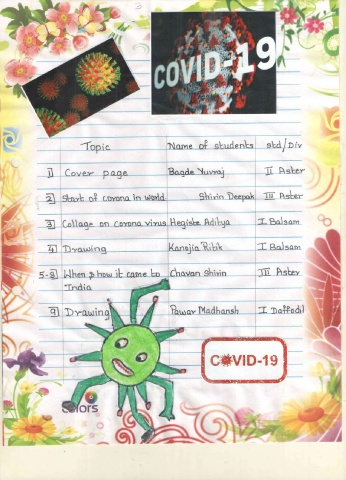 3
COVID-19
Topic Name of students std/Div
1) Cover page Bagde Yuvraj II Aster
2) Start of corona in world Shirin Deepak III Aster
3) Collage on corona virus Hegiste Aditya I Balsam
4) Drawing Kanojia Ritik I Balsam
5-8) When & how it came to Chavan Shivin III Aster
India
9) Drawing Pawar Madhansh I Daffodil
COVID-19
colors